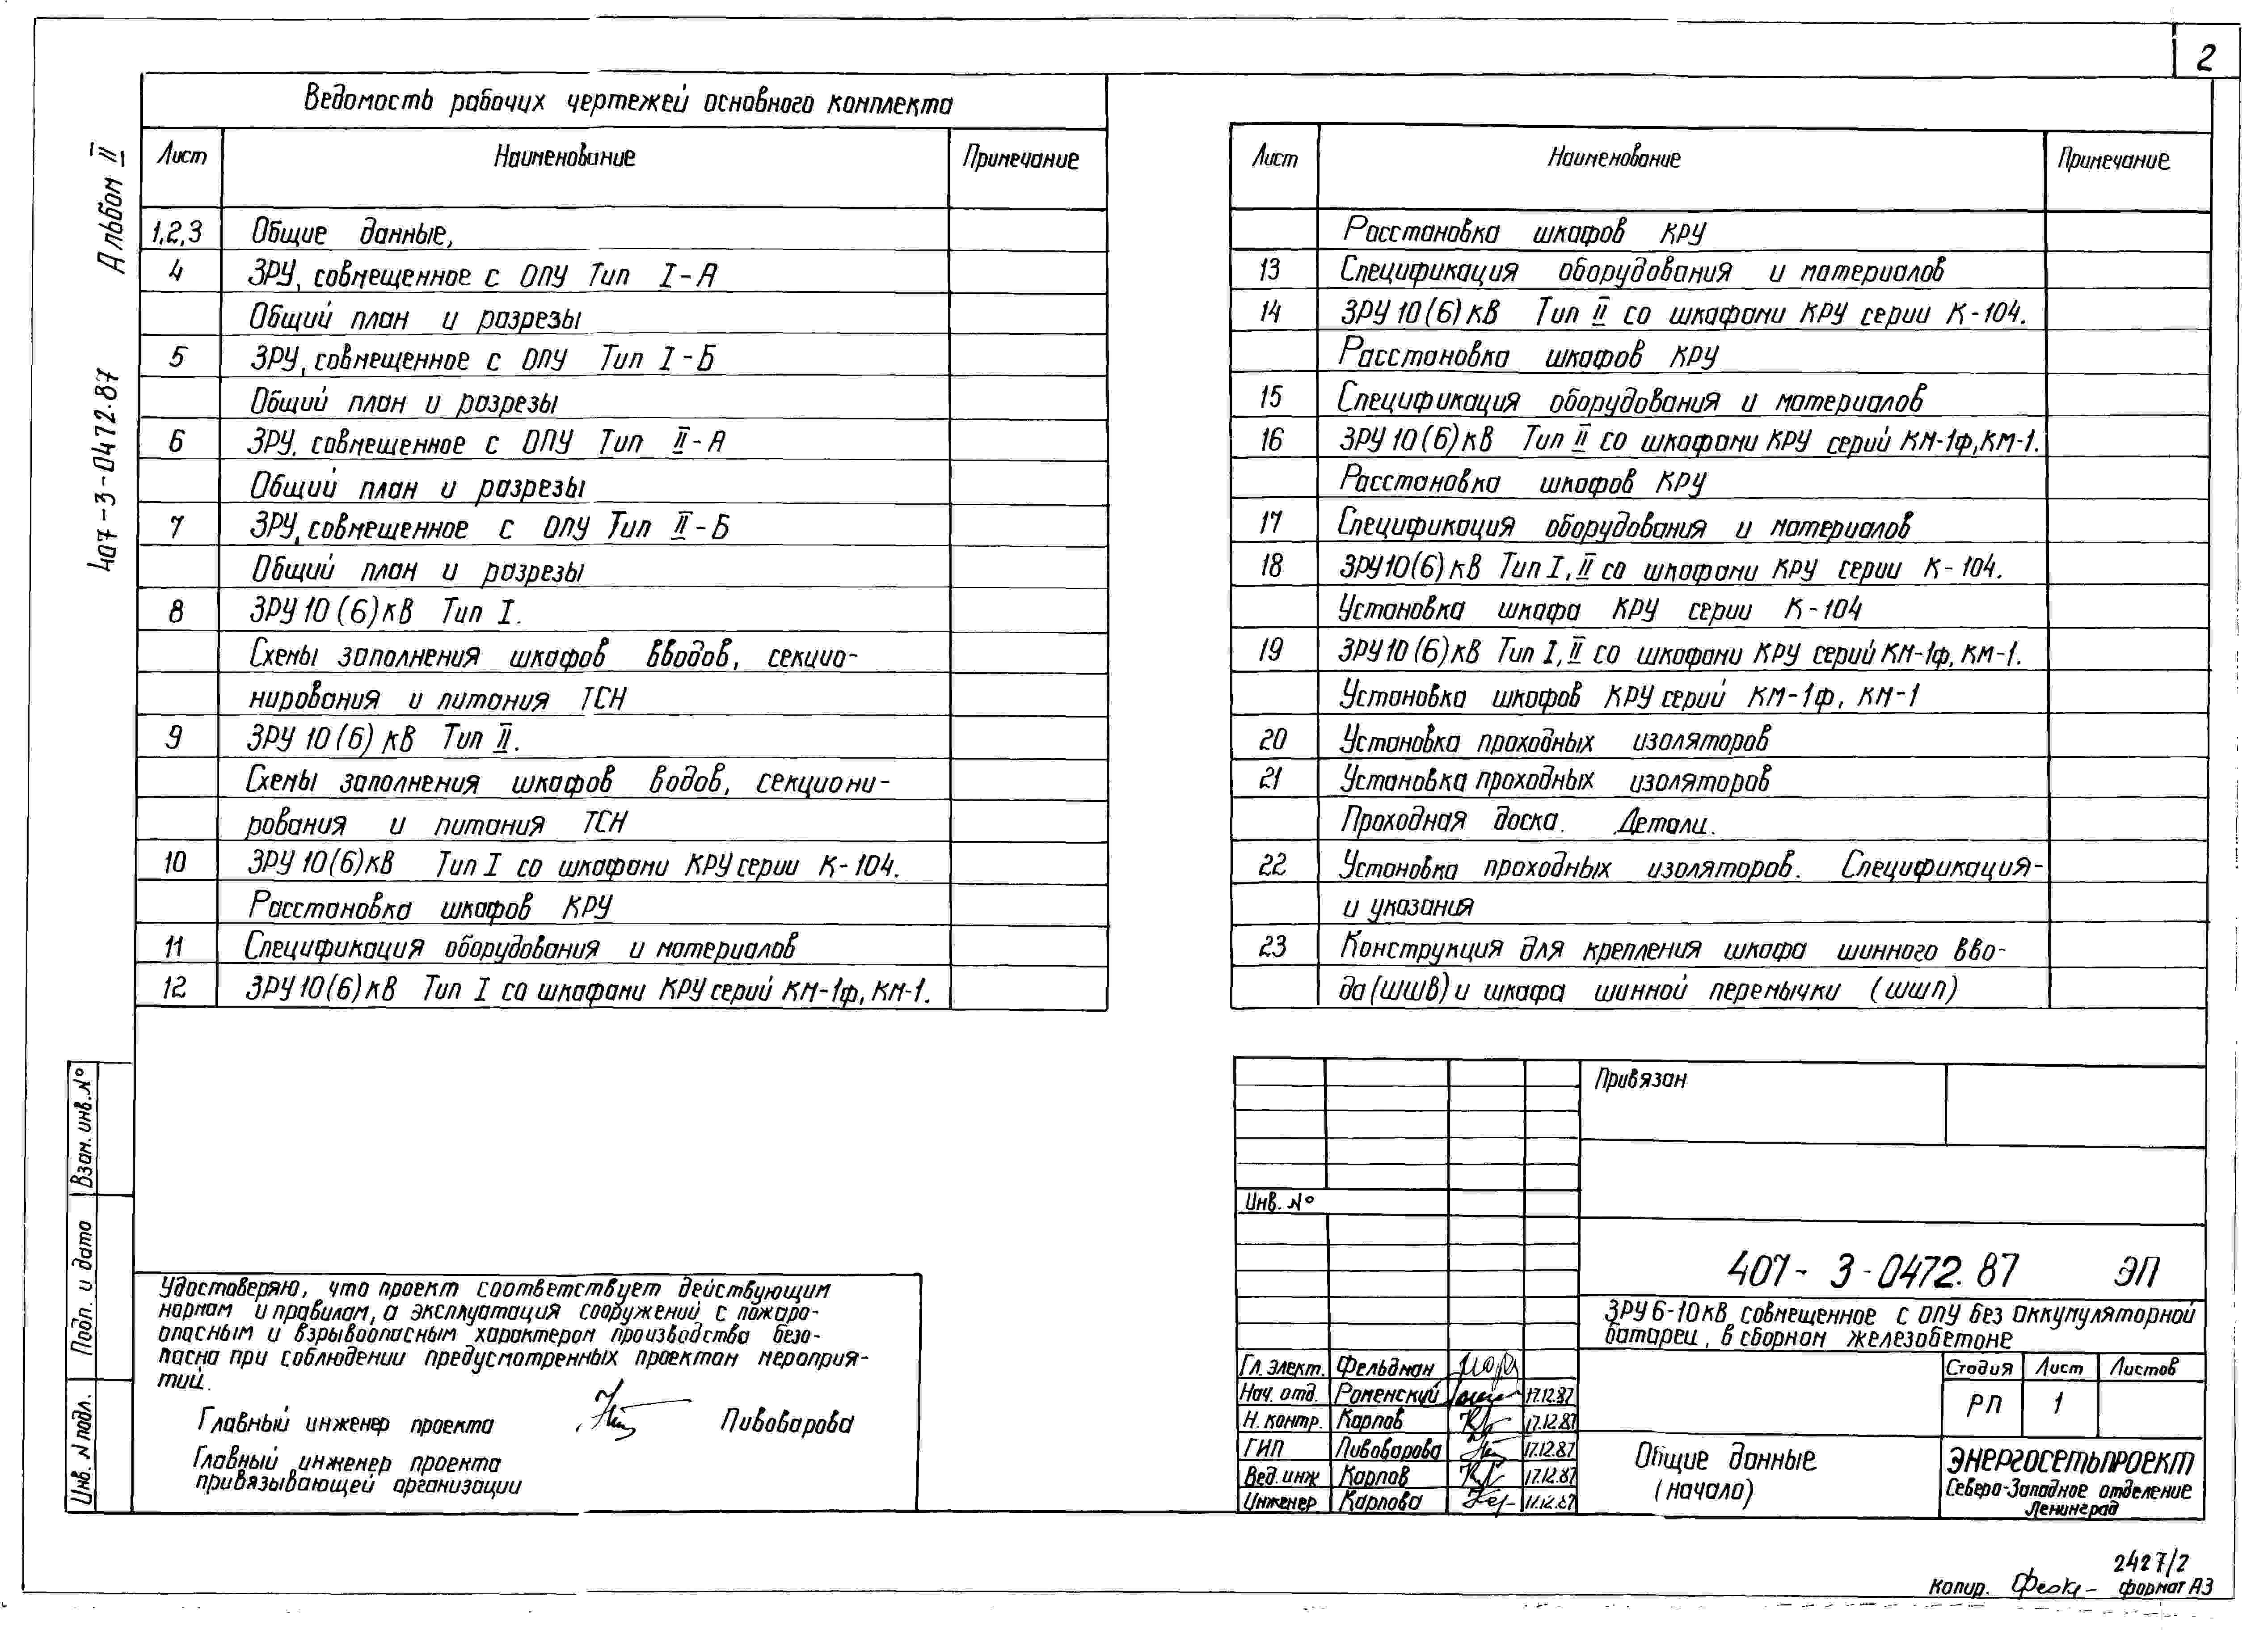 2
Альбом II
407-3-0472.87
Ведомость рабочих чертежей основного комплекта
Лист Наименование Примечание
1,2,3 Общие данные,
4 ЗРУ, совмещенное с ОПУ Тип I-А
Общий план и разрезы
5 ЗРУ, совмещенное с ОПУ Тип I-Б
Общий план и разрезы
6 ЗРУ, совмещенное с ОПУ Тип II-А
Общий план и разрезы
7 ЗРУ, совмещенное с ОПУ Тип II-Б
Общий план и разрезы
8 ЗРУ 10(6)кВ Тип I.
Схемы заполнения шкафов вводов, секцио-
нирования и питания ТСН
9 ЗРУ 10(6) кВ Тип II.
Схемы заполнения шкафов водов, секциони-
рования и питания ТСН
10 ЗРУ 10(6)кВ Тип I со шкафами КРУ серии К-104.
Расстановка шкафов КРУ
11 Спецификация оборудования и материалов
12 ЗРУ 10(6)кВ Тип I со шкафами КРУ серий КМ-1ф, КМ-1.
Лист Наименование Примечание
Расстановка шкафов КРУ
13 Спецификация оборудования и материалов
14 ЗРУ 10(6)кВ Тип II со шкафами КРУ серии К-104.
Расстановка шкафов КРУ
15 Спецификация оборудования и материалов
16 ЗРУ 10(6)кВ Тип II со шкафами КРУ серий КМ-1ф,КМ-1.
Расстановка шкафов КРУ
17 Спецификация оборудования и материалов
18 ЗРУ 10(6)кВ Тип I, II со шкафами КРУ серии К-104.
Установка шкафа КРУ серии К-104
19 ЗРУ 10(6)кВ Тип I, II со шкафами КРУ серий КМ-1ф, КМ-1.
Установка шкафов КРУ серий КМ-1ф, КМ-1
20 Установка проходных изоляторов
21 Установка проходных изоляторов
Проходная доска. Детали.
22 Установка проходных изоляторов. Спецификация-
и указания
23 Конструкция для крепления шкафа шинного вво-
да (ШШВ) и шкафа шинной перемычки (ШШП)
Взам. инв. №
Подп. и дата
Инв. N подл.
Удостоверяю, что проект соответствует действующим
нормам и правилам, а эксплуатация сооружений с пожаро-
опасным и взрывоопасным характером производства безо-
пасна при соблюдении предусмотренных проектом мероприя-
тий.
Главный инженер проекта Пивоварова
Главный инженер проекта
привязывающей организации
Привязан
Инв. №
407-3-0472.87 ЭП
ЗРУ 6-10кВ, совмещенное с ОПУ без аккумуляторной
батареи, в сборном железобетоне
Гл. элект. Фельдман
Нач. отд. Роменский 17.12.87
Н. контр. Карпов 17.12.87
ГИП Пивоварова 17.12.87
Вед. инж Карпов 17.12.87
Инженер Карпова 17.12.87
Стадия Лист Листов
РП 1
Общие данные
(начало)
ЭНЕРГОСЕТЬПРОЕКТ
Северо-Западное отделение
Ленинград
2427/2
Копир. формат А3